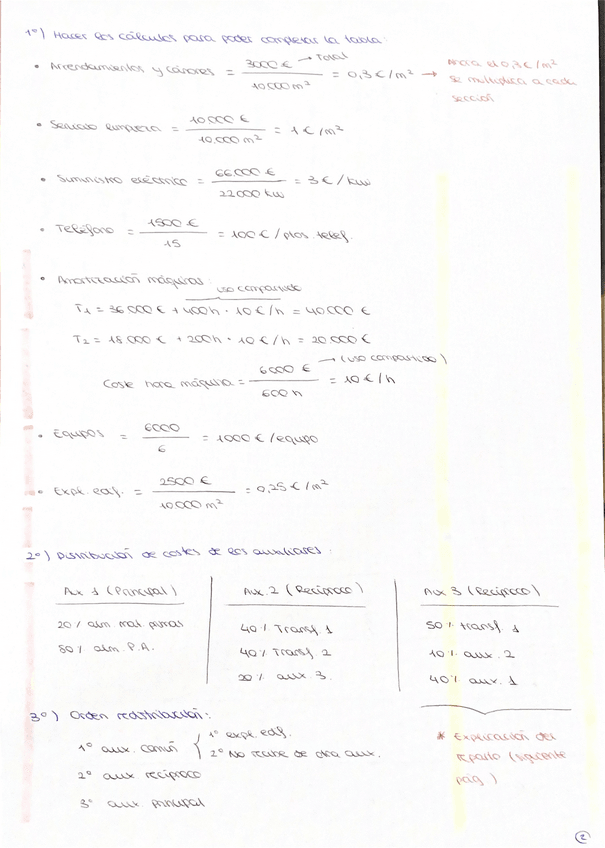 1º) Hacer los cálculos para poder completar la tabla:
• Arrendamientos y cánones = 3000 € → Total / 10.000 m² = 0,3 €/m² → Ahora el 0,3 €/m²
se multiplica a cada
sección
• Servicio limpieza = 10.000 € / 10.000 m² = 1 €/m²
• Suministro eléctrico = 66.000 € / 22.000 kw = 3 €/kw
• Teléfono = 1500 € / 15 = 100 € / ptos. telef.
• Amortización máquinas:
uso compartido
T1 = 36000 € + 400h · 10 €/h = 40000 €
T2 = 18000 € + 200h · 10 €/h = 20000 €
Coste hora máquina = 6000 € → (uso compartido) / 600 h = 10 €/h
• Equipos = 6000 / 6 = 1000 €/equipo
• Expl. edf. = 2500 € / 10.000 m² = 0,25 €/m²
2º) Distribución de costes de los auxiliares:
Aux 1 (Principal) Aux. 2 (Recíproco) Aux 3 (Recíproco)
20% alm. mat. primas 40% Transf. 1 50% transf. 1
80% alm. P.A. 40% Transf. 2 10% aux. 2
20% aux 3. 40% aux. 1
3º) Orden redistribución:
1º aux. común { 1º expl. edf.
2º No recibe de otra aux.
2º aux recíproco
3º aux. principal
* Explicación del
reparto (siguiente
pág)
2